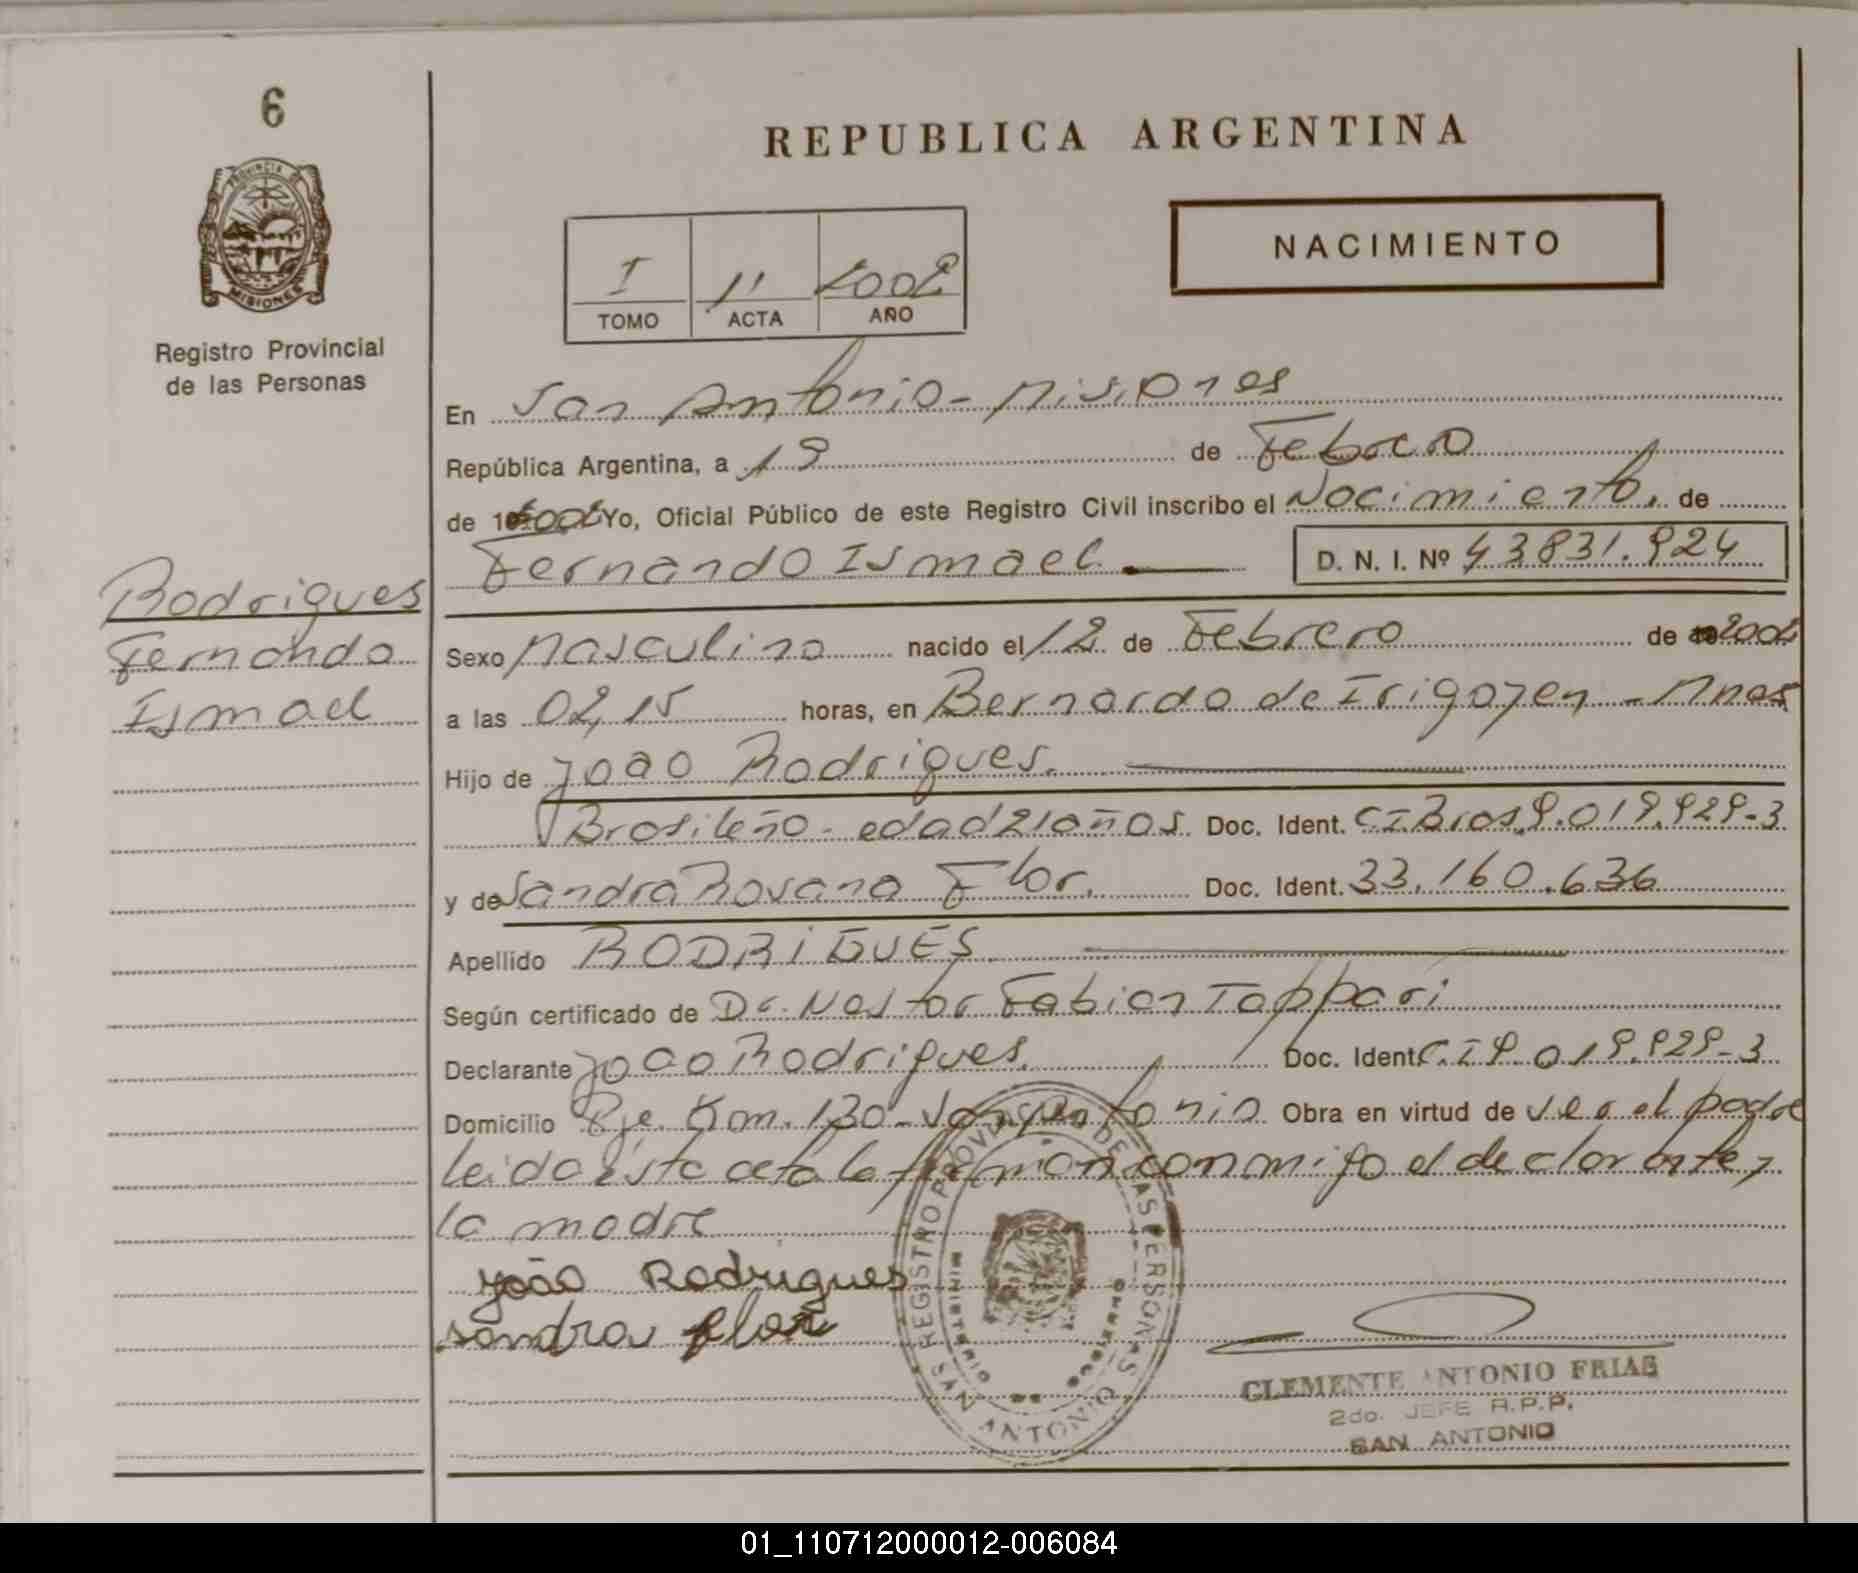 6
REPUBLICA ARGENTINA
PROVINCIA DE
MISIONES
Registro Provincial
de las Personas
NACIMIENTO
I 11 2002
TOMO ACTA AÑO
En San Antonio - Misiones
República Argentina, a 19 de Febrero
de 2002 Yo, Oficial Público de este Registro Civil inscribo el Nacimiento, de
Fernando Ismael. D. N. I. Nº 43831.924
Rodrigues
Fernando
Ismael
Sexo Masculino nacido el 12 de Febrero de 2002
a las 02,15 horas, en Bernardo de Irigoyen - Mnes
Hijo de Joao Rodrigues.
Brasileño - edad 21 años Doc. Ident. C.I.Bras.9.019.929-3
y de Sandra Rosana Flor. Doc. Ident. 33.160.636
Apellido RODRIGUES
Según certificado de Dr. Nestor Fabian Tappari
Declarante Joao Rodrigues. Doc. Ident. C.I 9.019.929-3
Domicilio Pje. Km. 130 - San Antonio Obra en virtud de ser el padre
leida ésta acta la firman conmigo el declarante y
la madre
João Rodrigues
Sandra flor
REGISTRO PROVINCIAL DE LAS PERSONAS
MINISTERIO DE GOBIERNO
SAN ANTONIO
CLEMENTE ANTONIO FRIAS
2do. JEFE R.P.P.
SAN ANTONIO
01_110712000012-006084